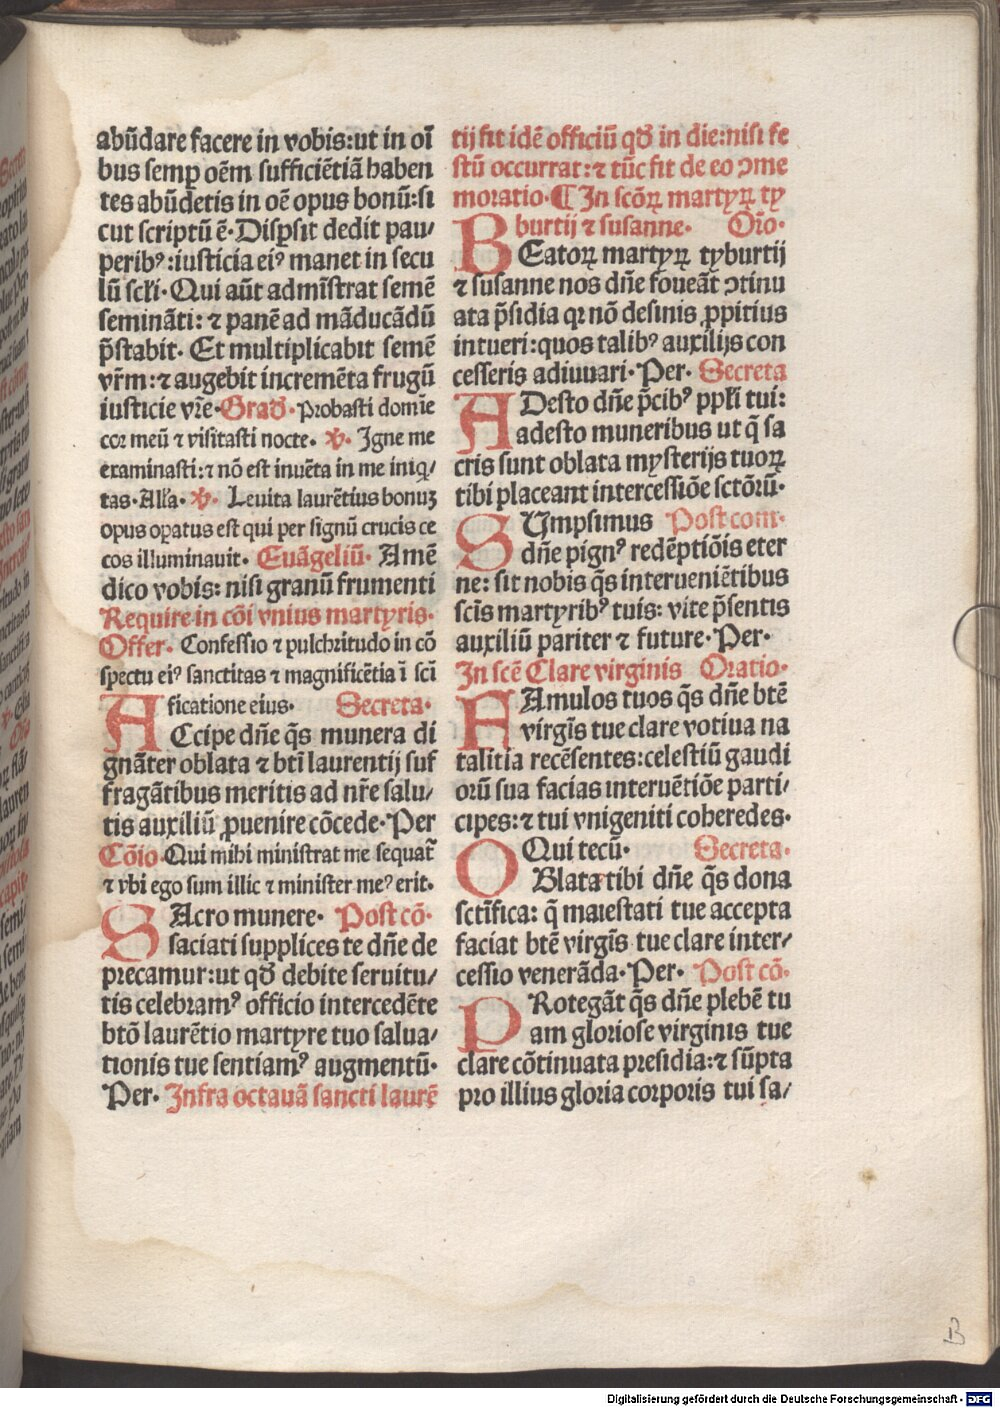 abūdare facere in vobis:ut in oī
bus semꝑ oēm sufficiētiā haben
tes abūdetis in oē opus bonū:si
cut scriptū ē·Disꝑsit dedit pau/
peribꝰ:iusticia eiꝰ manet in secu
lū scłi·Qui aūt admīstrat semē
semināti:⁊ panē ad māducādū
p̄stabit· Et multiplicabit semē
vr̄m:⁊ augebit incremēta frugū
iusticie vr̄e·Grad̄·Probasti domīe
cor meū ⁊ visitasti nocte· ℣· Igne me
examinasti:⁊ nō est inuēta in me iniq̨/
tas·Alła· ℣· Leuita laurētius bonuꝫ
opus oꝑatus est qui per signū crucis ce
cos illuminauit· Euāgeliū· Amē
dico vobis: nisi granū frumenti
Require in cōi vnius martyris·
Offer· Confessio ⁊ pulchritudo in cō
spectu eiꝰ sanctitas ⁊ magnificētia ī scī
ficatione eius· Secreta·
ACcipe dn̄e q̄s munera di
gnāter oblata ⁊ btī laurentij suf
fragātibus meritis ad nr̄e salu/
tis auxiliū ꝓuenire cōcede·Per
Cōio·Qui mihi ministrat me sequat᷑
⁊ vbi ego sum illic ⁊ minister meꝰ erit·
SAcro munere· Post cō·
saciati supplices te dn̄e de
precamur:ut qd̄ debite seruitu/
tis celebramꝰ officio intercedēte
btō laurētio martyre tuo salua/
tionis tue sentiamꝰ augmentū·
Per· Infra octauā sancti laurē
tij fit idē officiū qd̄ in die:nisi fe
stū occurrat:⁊ tūc fit de eo ꝯme
moratio·¶ In scōꝝ martyꝝ ty
burtij ⁊ susanne· Or̄o·
BEatoꝝ martyꝝ tyburtij
⁊ susanne nos dn̄e foueāt ꝯtinu
ata p̄sidia qꝛ nō desinis ꝓpitius
intueri:quos talibꝰ auxilijs con
cesseris adiuuari·Per· Secreta
ADesto dn̄e p̄cibꝰ ppłi tui:
adesto muneribus ut q̄ sa
cris sunt oblata mysterijs tuoꝝ
tibi placeant intercessiōe sctōrū·
SUmpsimus Post com·
dn̄e pignꝰ redēptiōis eter
ne: sit nobis q̄s interueniētibus
scīs martyribꝰ tuis: vite p̄sentis
auxiliū pariter ⁊ future·Per·
In scē Clare virginis Oratio·
FAmulos tuos q̄s dn̄e btē
virgīs tue clare votiua na
talitia recēsentes:celestiū gaudi
orū sua facias interuētiōe parti/
cipes:⁊ tui vnigeniti coheredes·
Qui tecū· Secreta·
OBlata tibi dn̄e q̄s dona
sctīfica: q̄ maiestati tue accepta
faciat btē virgīs tue clare inter/
cessio venerāda·Per· Post cō·
PRotegāt q̄s dn̄e plebē tu
am gloriose virginis tue
clare cōtinuata presidia:⁊ sūpta
pro illius gloria corporis tui sa/
B
Digitalisierung gefördert durch die Deutsche Forschungsgemeinschaft · DFG